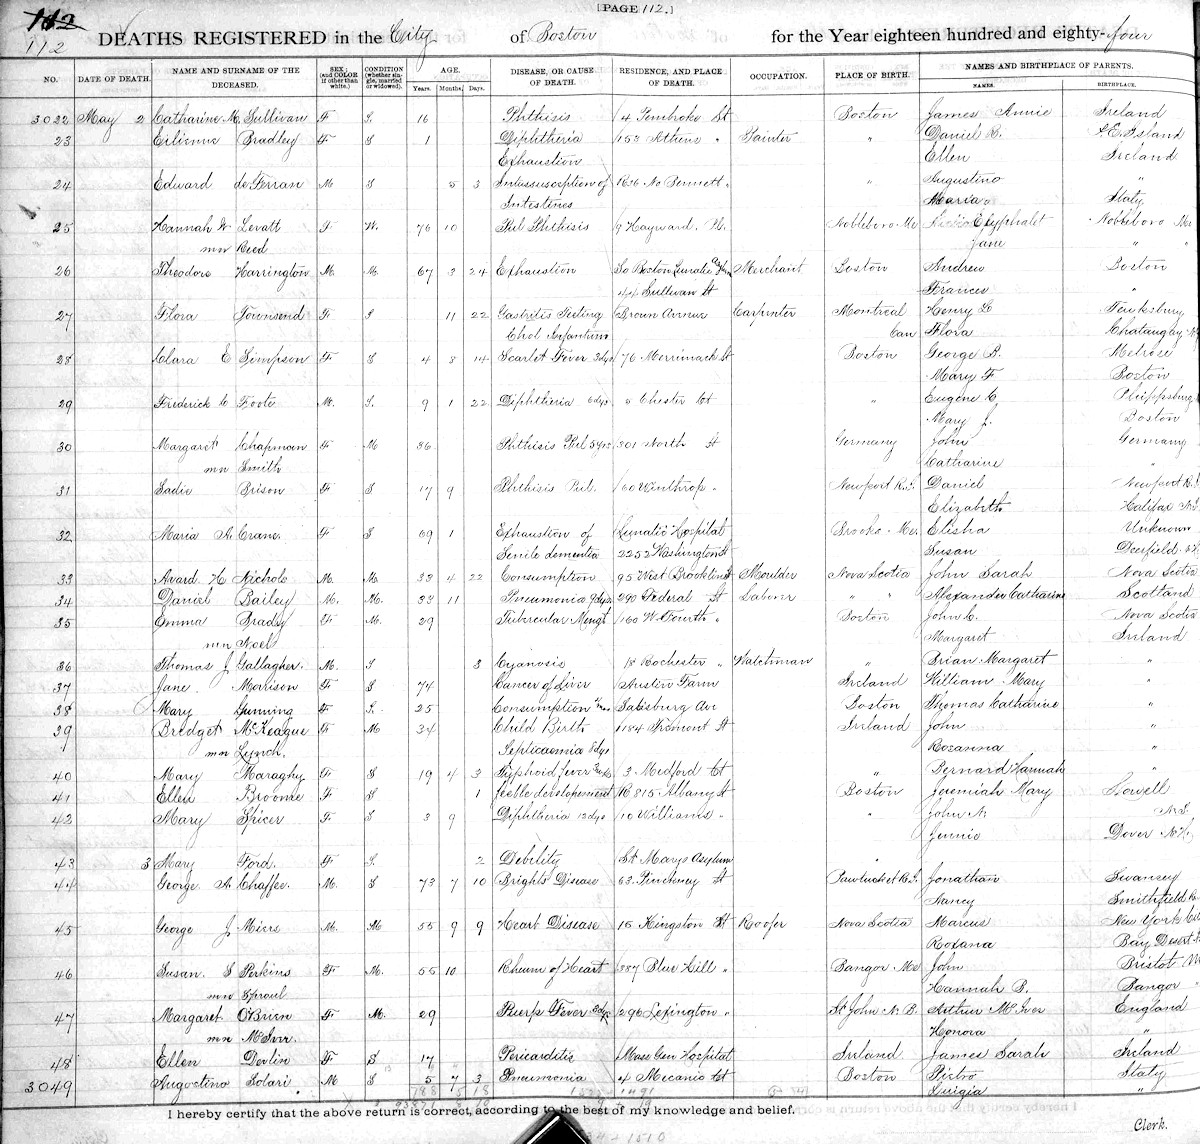 112
[PAGE 112.]
112 DEATHS REGISTERED in the City of Boston for the Year eighteen hundred and eighty-four
NO. DATE OF DEATH. NAME AND SURNAME OF THE DECEASED. SEX; (and COLOR if other than white.) CONDITION (whether single, married or widowed). AGE. Years. Months. Days. DISEASE, OR CAUSE OF DEATH. RESIDENCE, AND PLACE OF DEATH. OCCUPATION. PLACE OF BIRTH. NAMES AND BIRTHPLACE OF PARENTS. NAMES. BIRTHPLACE.
3022 May 2 Catharine M. Sullivan F S. 16 Phthisis 4 Pembroke St Boston James Annie Ireland
23 Bradley F S 1 Diphtheria 153 Athens " Painter " Daniel B. P.E. Island
Exhaustion Ellen Ireland
24 Edward deFerran M S 5 3 Intussusception of 163 No Bennett " " Augustino "
Intestines Maria Italy
25 Hannah W Levatt F W. 76 10 Pul Phthisis 9 Hayward Pl. Nobleboro Me Elyphalet Nobleboro Me
mn Reed Jane " "
26 Theodore Harrington M. M. 67 3 24 Exhaustion So Boston Lunatic Merchant Boston Andrew Boston
44 Sullivan St Frances "
27 Flora Townsend F S 11 22 Gastrites Teeting Brown Avenue Carpenter Montreal Henry L Teuksbury
Chol Infantum Can Flora Chataugay
28 Clara E Simpson F S 4 8 14 Scarlet Fever 3dys 76 Merrimack St Boston George B. Melrose
Mary F Boston
29 Frederick C Foote M. S. 9 1 22 Diphtheria 6dys 5 Chester Ct " Eugene C Phippsburg
Mary J. Boston
30 Margaret Chapman F M 36 Phthisis Pul 5yrs 301 North St Germany John Germany
mn Smith Catharine "
31 Sadie Brison F S 17 9 Phthisis Pul. 60 Winthrop " Newport R.I. Daniel Newport R.I.
Elizabeth Halifax N.S
32 Maria A Crane. F S 69 1 Exhaustion of Lunatic Hospital Brooks Me. Elisha Unknown
Senile dementia 2252 Washington St Susan Deerfield
33 Avard H Nichols M. M. 33 4 22 Consumption 95 West Brookline St Moulder Nova Scotia John Sarah Nova Scotia
34 Daniel Bailey M. M. 33 11 Pneumonia 9dys 290 Federal St Laborer " " Alexander Catharine Scotland
35 Emma Brady F M. 29 Tubrcular Mengt 160 W. Fourth " Boston John C. Nova Scotia
mn Noel Margaret Ireland
36 Thomas J Gallagher. M. S 3 Cyanosis 18 Rochester " Watchman " Brian Margaret "
37 Jane Morrison F S 74 Cancer of Liver Austin Farm Ireland William Mary "
38 Mary Gunning F S. 25 Consumption Salisbury Av Boston Thomas Catharine "
39 Bredget McKeague F M 34 Child Birth 1184 Tremont St Ireland John "
mn Lynch. Septicaemia 8dys Rosanna "
40 Mary Maraghy F S 19 4 3 Typhoid fever 3 Medford Ct " Bernard Hannah "
41 Ellen Broome F S 1 feeble developement 815 Albany St Boston Jeremiah Mary Lowell
42 Mary Spicer F S 3 9 Diphtheria 12dys 10 Williams " " John N. N.S
Jennie Dover N.H
43 3 Mary Ford. F S. 2 Debility St Marys Asylum "
44 George A. Chaffee. M. S 73 7 10 Brights Disease 63 Pinckney St Pawtucket R.I. Jonathan Swansey
Nancy Smithfield R
45 George J Miers M. M 55 9 9 Heart Disease 15 Kingston St Roofer Nova Scotia Marcus New York
Roxana Bay Desert
46 Susan S Perkins F M. 55 10 Rheum of Heart 387 Blue Hill " Bangor Me John Bristol
mn Sproul Hannah B. Bangor "
47 Margaret O'Brien F M. 29 Puerp Fever 296 Lexington " St John N.B. Arthur McIver England
mn McIver. Honora "
48 Ellen Devlin F S 17 Pericarditis Mass Gen Hospital Irland James Sarah Ireland
3049 Augostino Solari M S 5 7 3 Pneumonia 4 Mecanic Ct Boston Pietro Italy
Luigia "
I hereby certify that the above return is correct, according to the best of my knowledge and belief.
Clerk.
1510